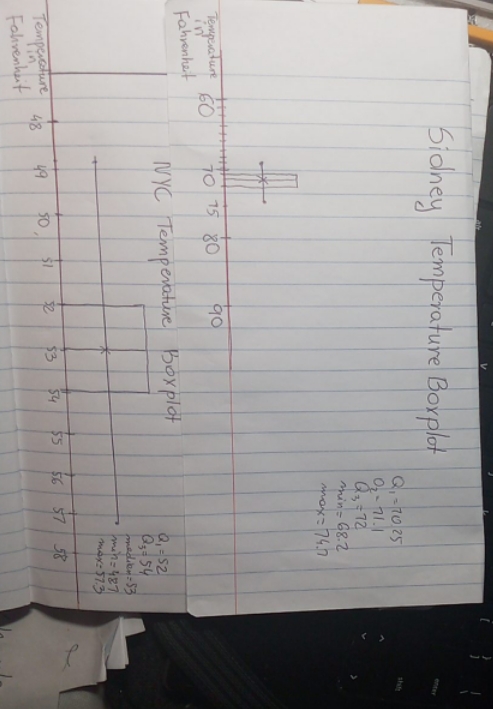 Sidney Temperature Boxplot
Q₁=70.25
Q₂=71.1
Q₃=72
min=68.2
max=74.7
60 70 75 80 90
Temperature
in
Fahrenheit
NYC Temperature Boxplot
Q₁=52
Q₃=54
median=53
min=48.7
max=57.3
48 49 50, 51 52 53 54 55 56 57 58
Temperature
in
Fahrenheit